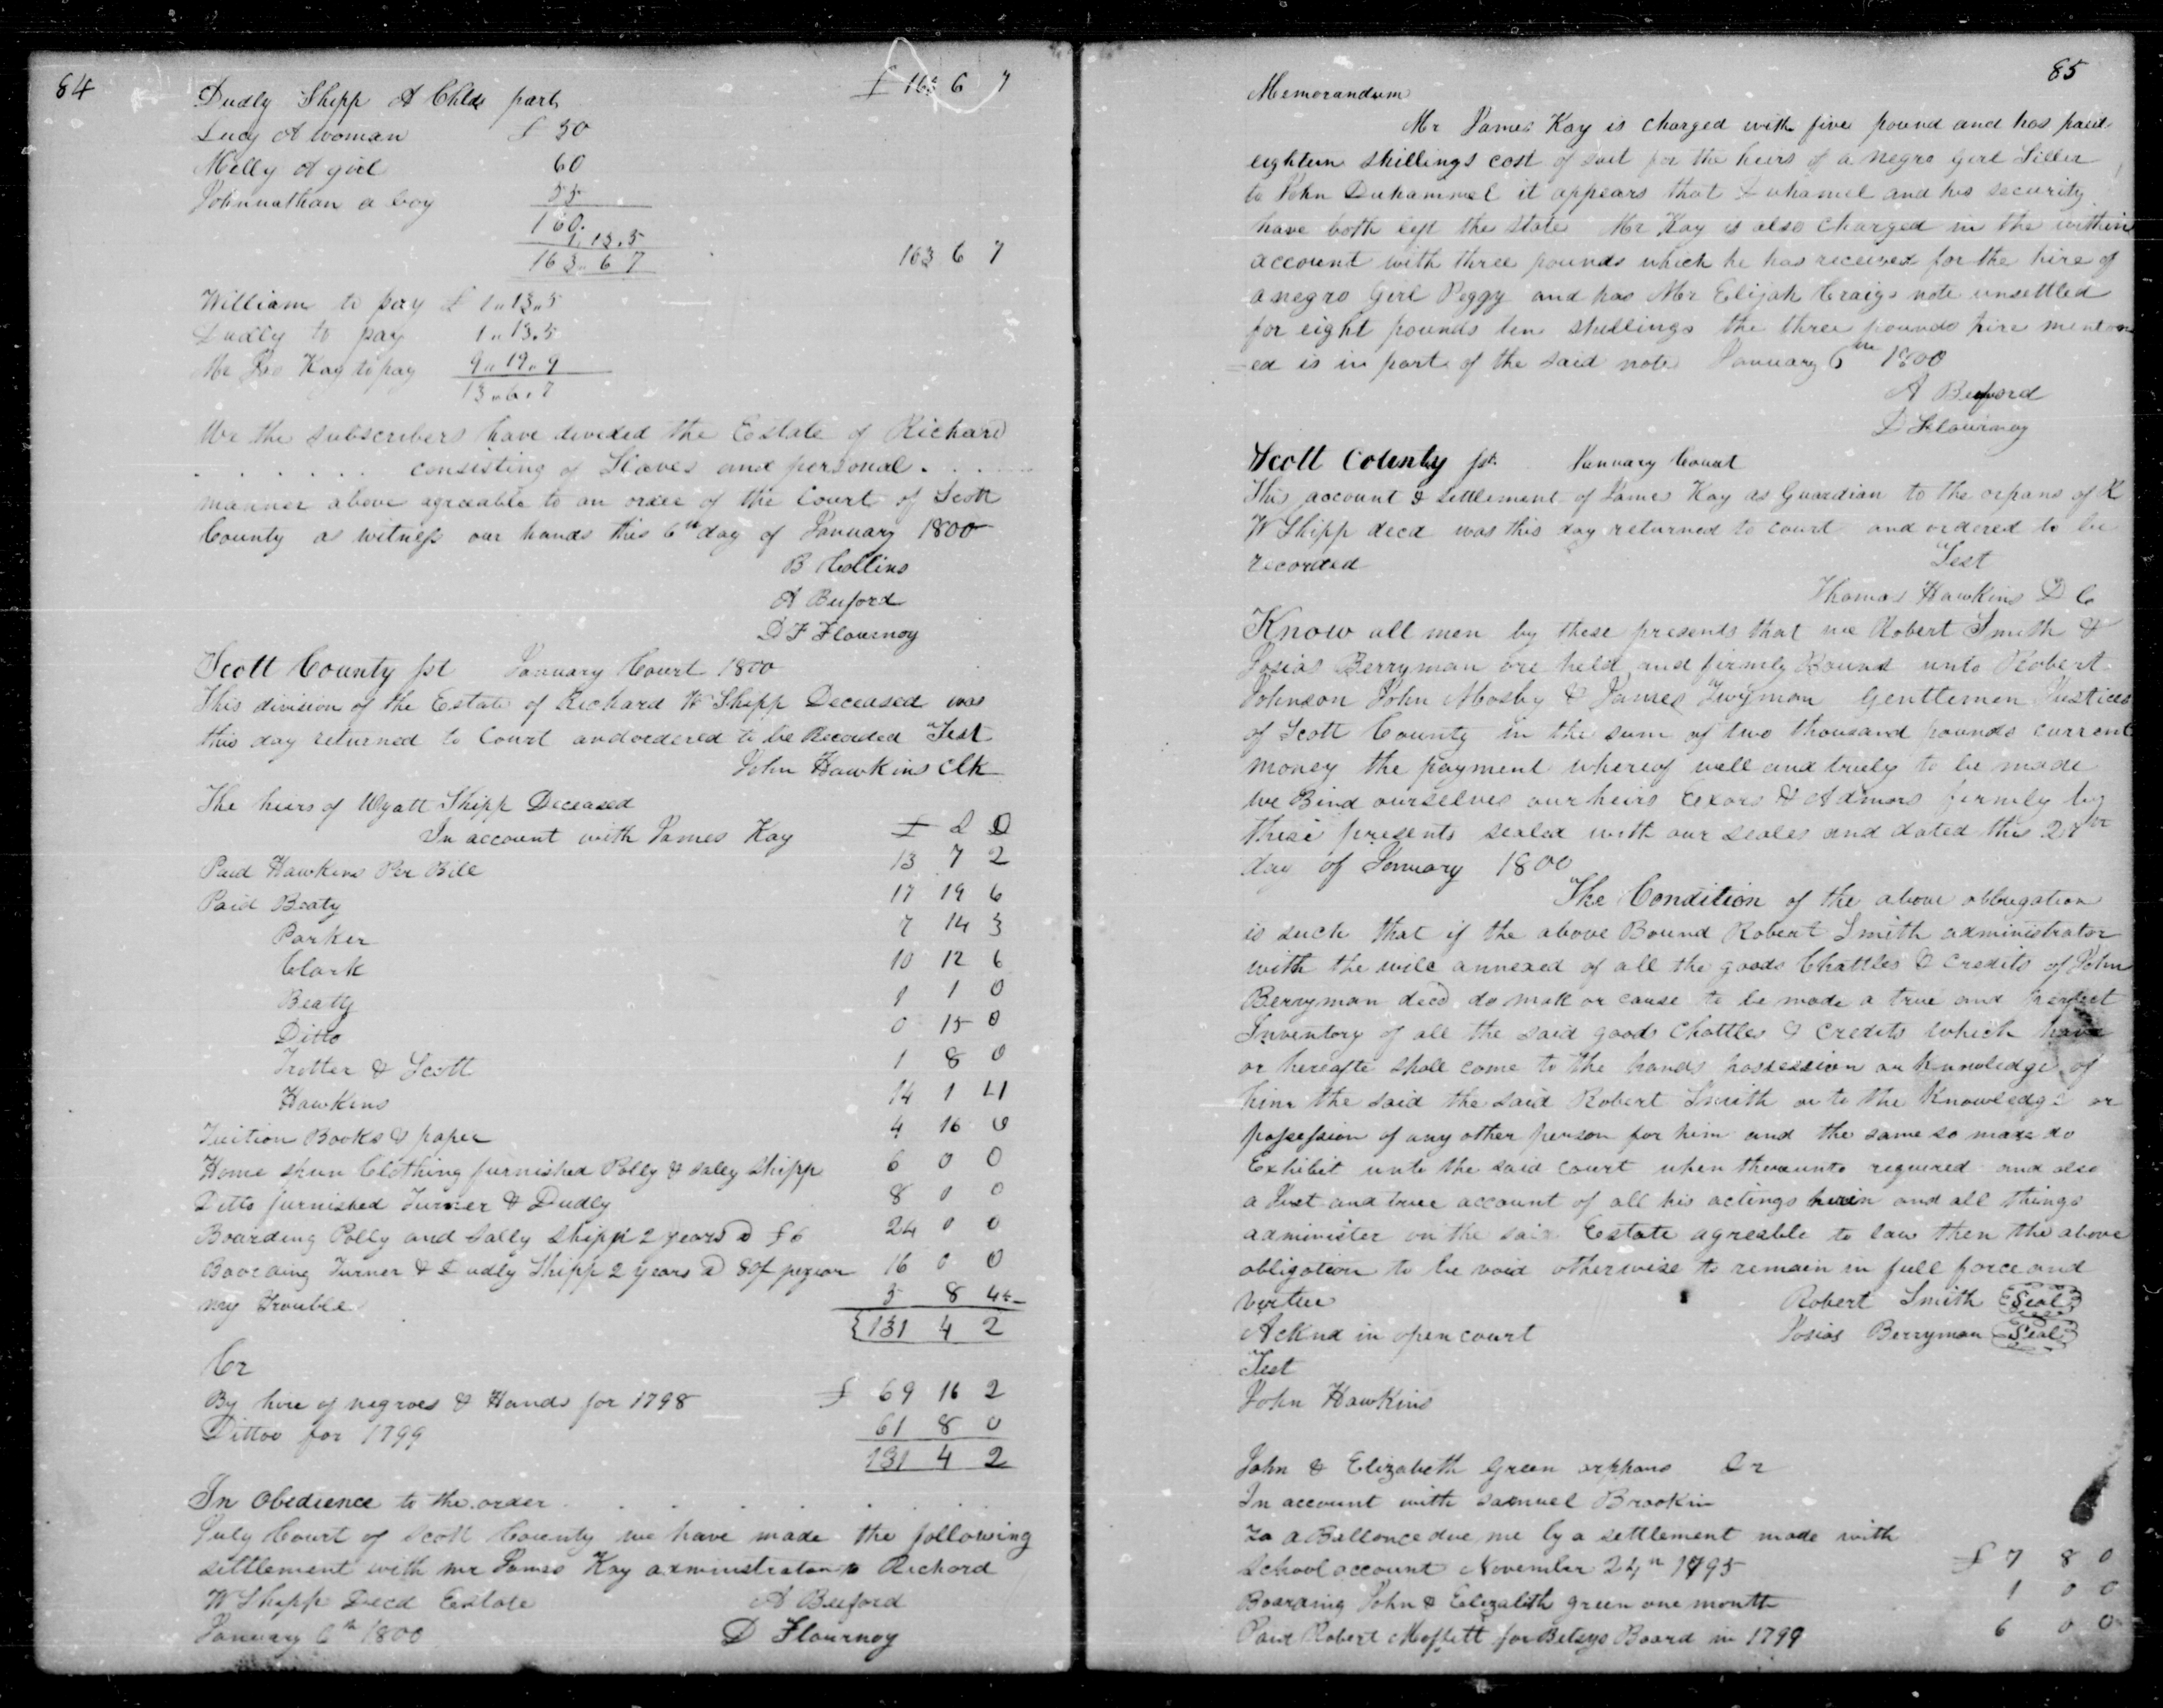 84
Dudly Shipp A Childs part £ 163 6 7
Lucy A woman £ 50
Milly A girl 60
Johnnathan a boy 55
160.
1.13.5
163.. 6 7 163 6 7
William to pay £ 1.. 13.. 5
Dudly to pay 1.. 13.5
Mr Jas Kay to pay 9.. 19.. 9
13..6.7
We the subscribers have devided the Estate of Richard
. . . . . . . consisting of Slaves and personal . . . .
manner above agreeable to an order of the Court of Scott
County as witness our hands this 6th day of January 1800
B Collins
A Buford
D F Flournoy
Scott County sst January Court 1800
This division of the Estate of Richard W Shipp Deceased was
this day returned to Court and ordered to be Recorded Test
John Hawkins Clk
The heirs of Wyatt Shipp Deceased
In account with James Kay £ S D
Paid Hawkins Per Bill 13 7 2
Paid Beaty 17 19 6
Parker 7 14 3
Clark 10 12 6
Beatty 1 1 0
Ditto 0 15 0
Trotter & Scott 1 8 0
Hawkins 14 1 11
Tuition Books & paper 4 16 0
Home spun Clothing furnished Polly & Saley Shipp 6 0 0
Ditto furnished Turner & Dudly 8 0 0
Boarding Polly and Sally Shipp 2 years @ £6 24 0 0
Boarding Turner & Dudly Shipp 2 years @ 80/ pr year 16 0 0
my Trouble 5 8 4
131 4 2
Cr
By hire of negroes & Hands for 1798 £ 69 16 2
Dittoo for 1799 61 8 0
131 4 2
In Obedience to the order . . . . . . .
July Court of Scott County we have made the following
settlement with mr James Kay administrator to Richard
W Shipp Decd Estate A Buford
January 6th 1800 D Flournoy
85
Memorandum
Mr James Kay is charged with five pound and has paid
eighteen shillings cost of suit for the heirs of a negro girl Siller
to John Duhammel it appears that Duhamel and his security
have both left the state Mr Kay is also charged in the within
account with three pounds which he has received for the hire of
a negro Girl Peggy and has Mr Elijah Craigs note unsettled
for eight pounds ten shillings the three pounds hire mention
=ed is in part of the said note January 6th 1800
A Buford
D Flournoy
Scott County sst January Court
This account & settlement of James Kay as Guardian to the orpans of R
W Shipp decd was this day returned to court and ordered to be
recorded Test
Thomas Hawkins D C
Know all men by these presents that we Robert Smith &
Josias Berryman are held and firmly Bound unto Robert
Johnson John Mosby & James Twyman Gentlemen Justices
of Scott County in the sum of two thousand pounds current
money the payment whereof well and truely to be made
we Bind ourselves our heirs exors & Admors firmly by
these presents sealed with our seales and dated this 27th
day of January 1800
The Condition of the above obbligation
is such that if the above Bound Robert Smith administrator
with the will annexed of all the goods Chattles & credits of John
Berryman decd do make or cause to be made a true and perfect
Inventory of all the said goods Chattles & credits which have
or hereafte shall come to the hands possession or knowledge of
him the said the said Robert Smith or to the Knowledge or
possession of any other person for him and the same so made do
Exhibit unto the said court when thereunto required and also
a Just and true account of all his actings herein and all things
administer on the said Estate agreable to law then the above
obligation to be void otherwise to remain in full force and
Virtue Robert Smith Seal
Acknd in open court Josias Berryman Seal
Test
John Hawkins
John & Elizabeth Green orphans Dr
In account with Samuel Brookin
To a Ballonce due me by a settlement made with
School account November 24th 1795 £ 7 8 0
Boarding John & Elizabeth green one month 1 0 0
Paid Robert Moffett for Betsys Board in 1799 6 0 0